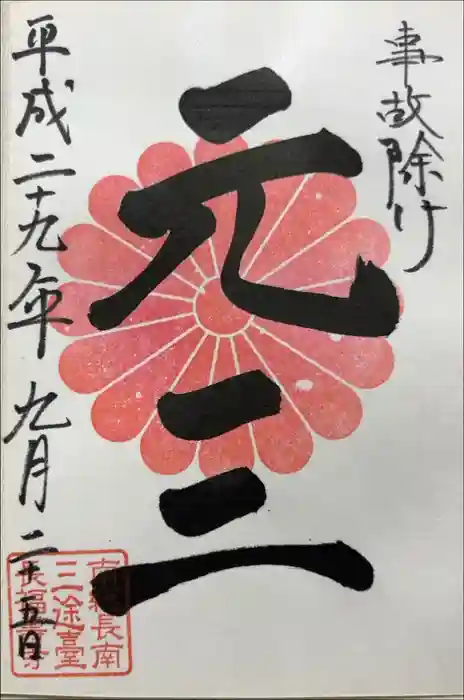 事故除け
元三
平成二十九年 九月二十五日
南總長南
三途臺
長福壽寺